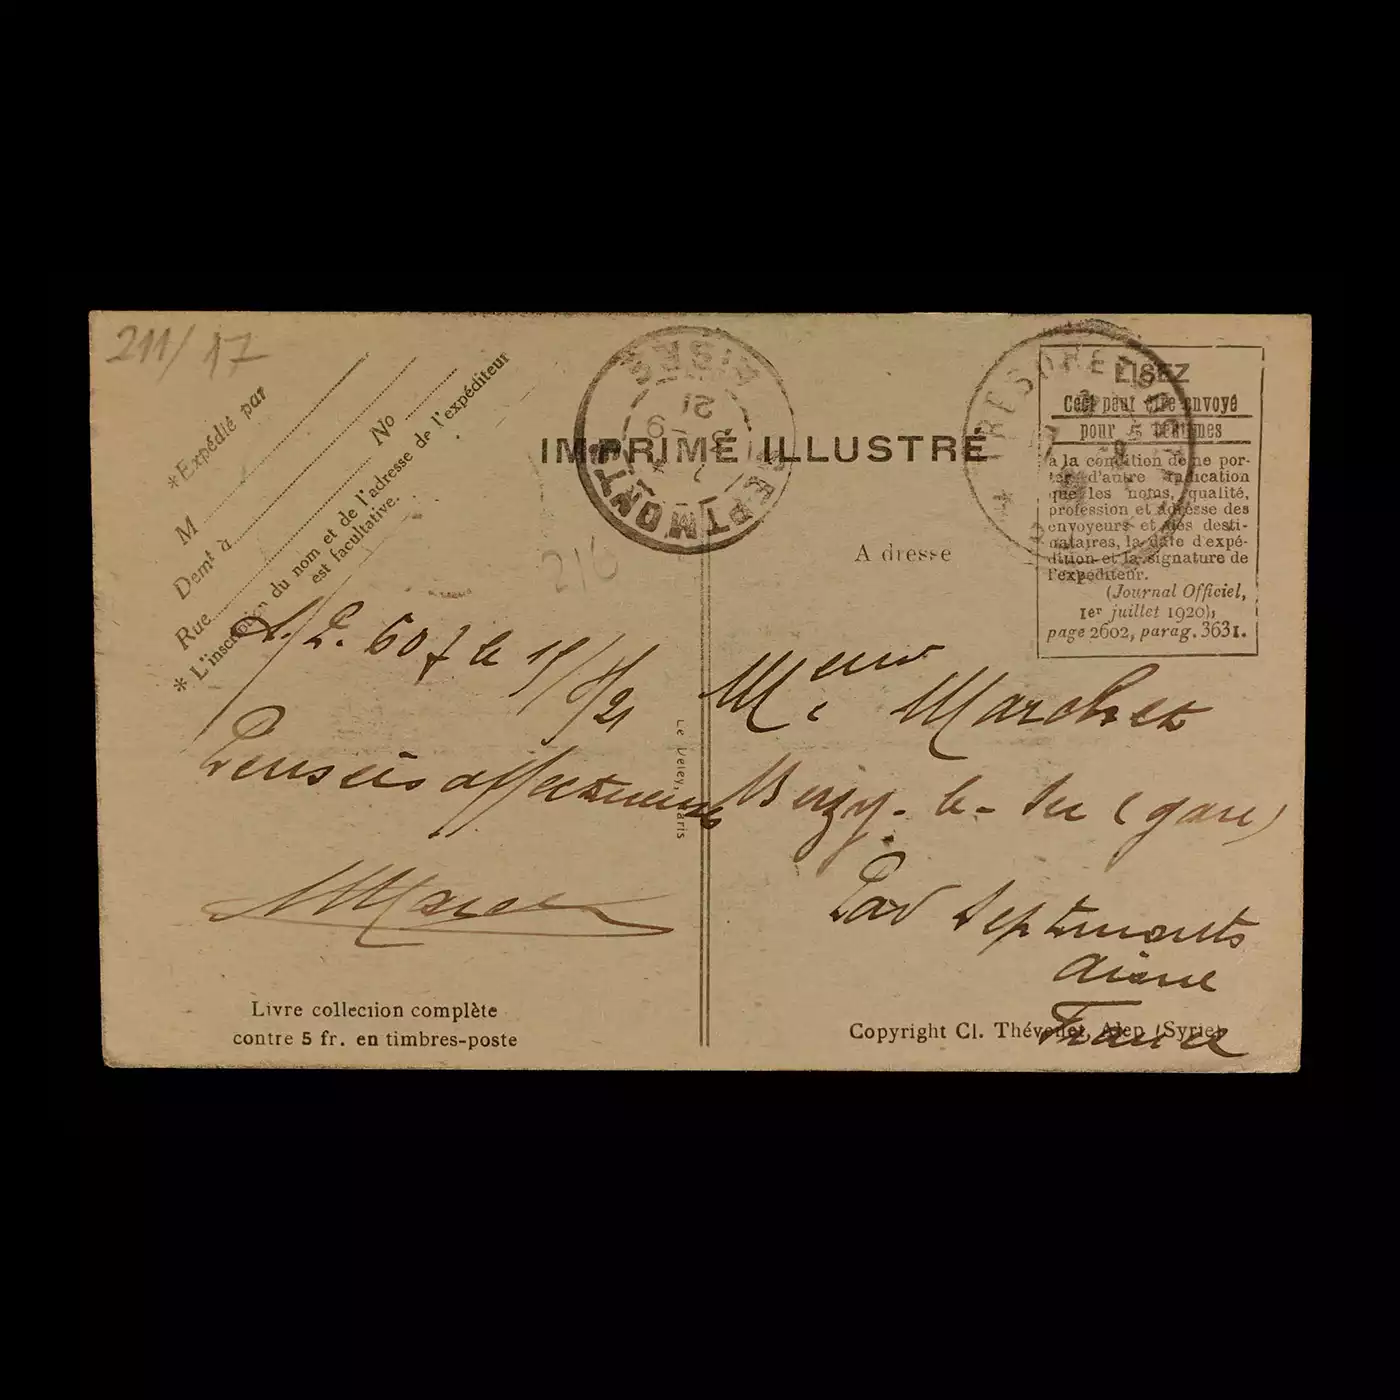 211/17
*Expédié par
M
No
Demt à
Rue
* L'inscription du nom et de l'adresse de l'expéditeur
est facultative.
SEPTMONTS
AISNE
7
9
21
IMPRIMÉ ILLUSTRÉ
TRESOR ET POSTES
LISEZ
Ceci peut être envoyé
pour 5 centimes
à la condition de ne por-
ter d'autre indication
que les noms, qualité,
profession et adresse des
envoyeurs et des desti-
nataires, la date d'expé-
dition et la signature de
l'expéditeur.
(Journal Officiel,
1er juillet 1920),
page 2602, parag. 3631.
216
Adresse
607 le 15/8/21
Pensées affectueuses
Le Deley, Paris
Mr
Berzy-le-Sec (gare)
Par Septmonts
Aisne
France
Livre collection complète
contre 5 fr. en timbres-poste
Copyright Cl. Thévenet, Alep (Syrie)